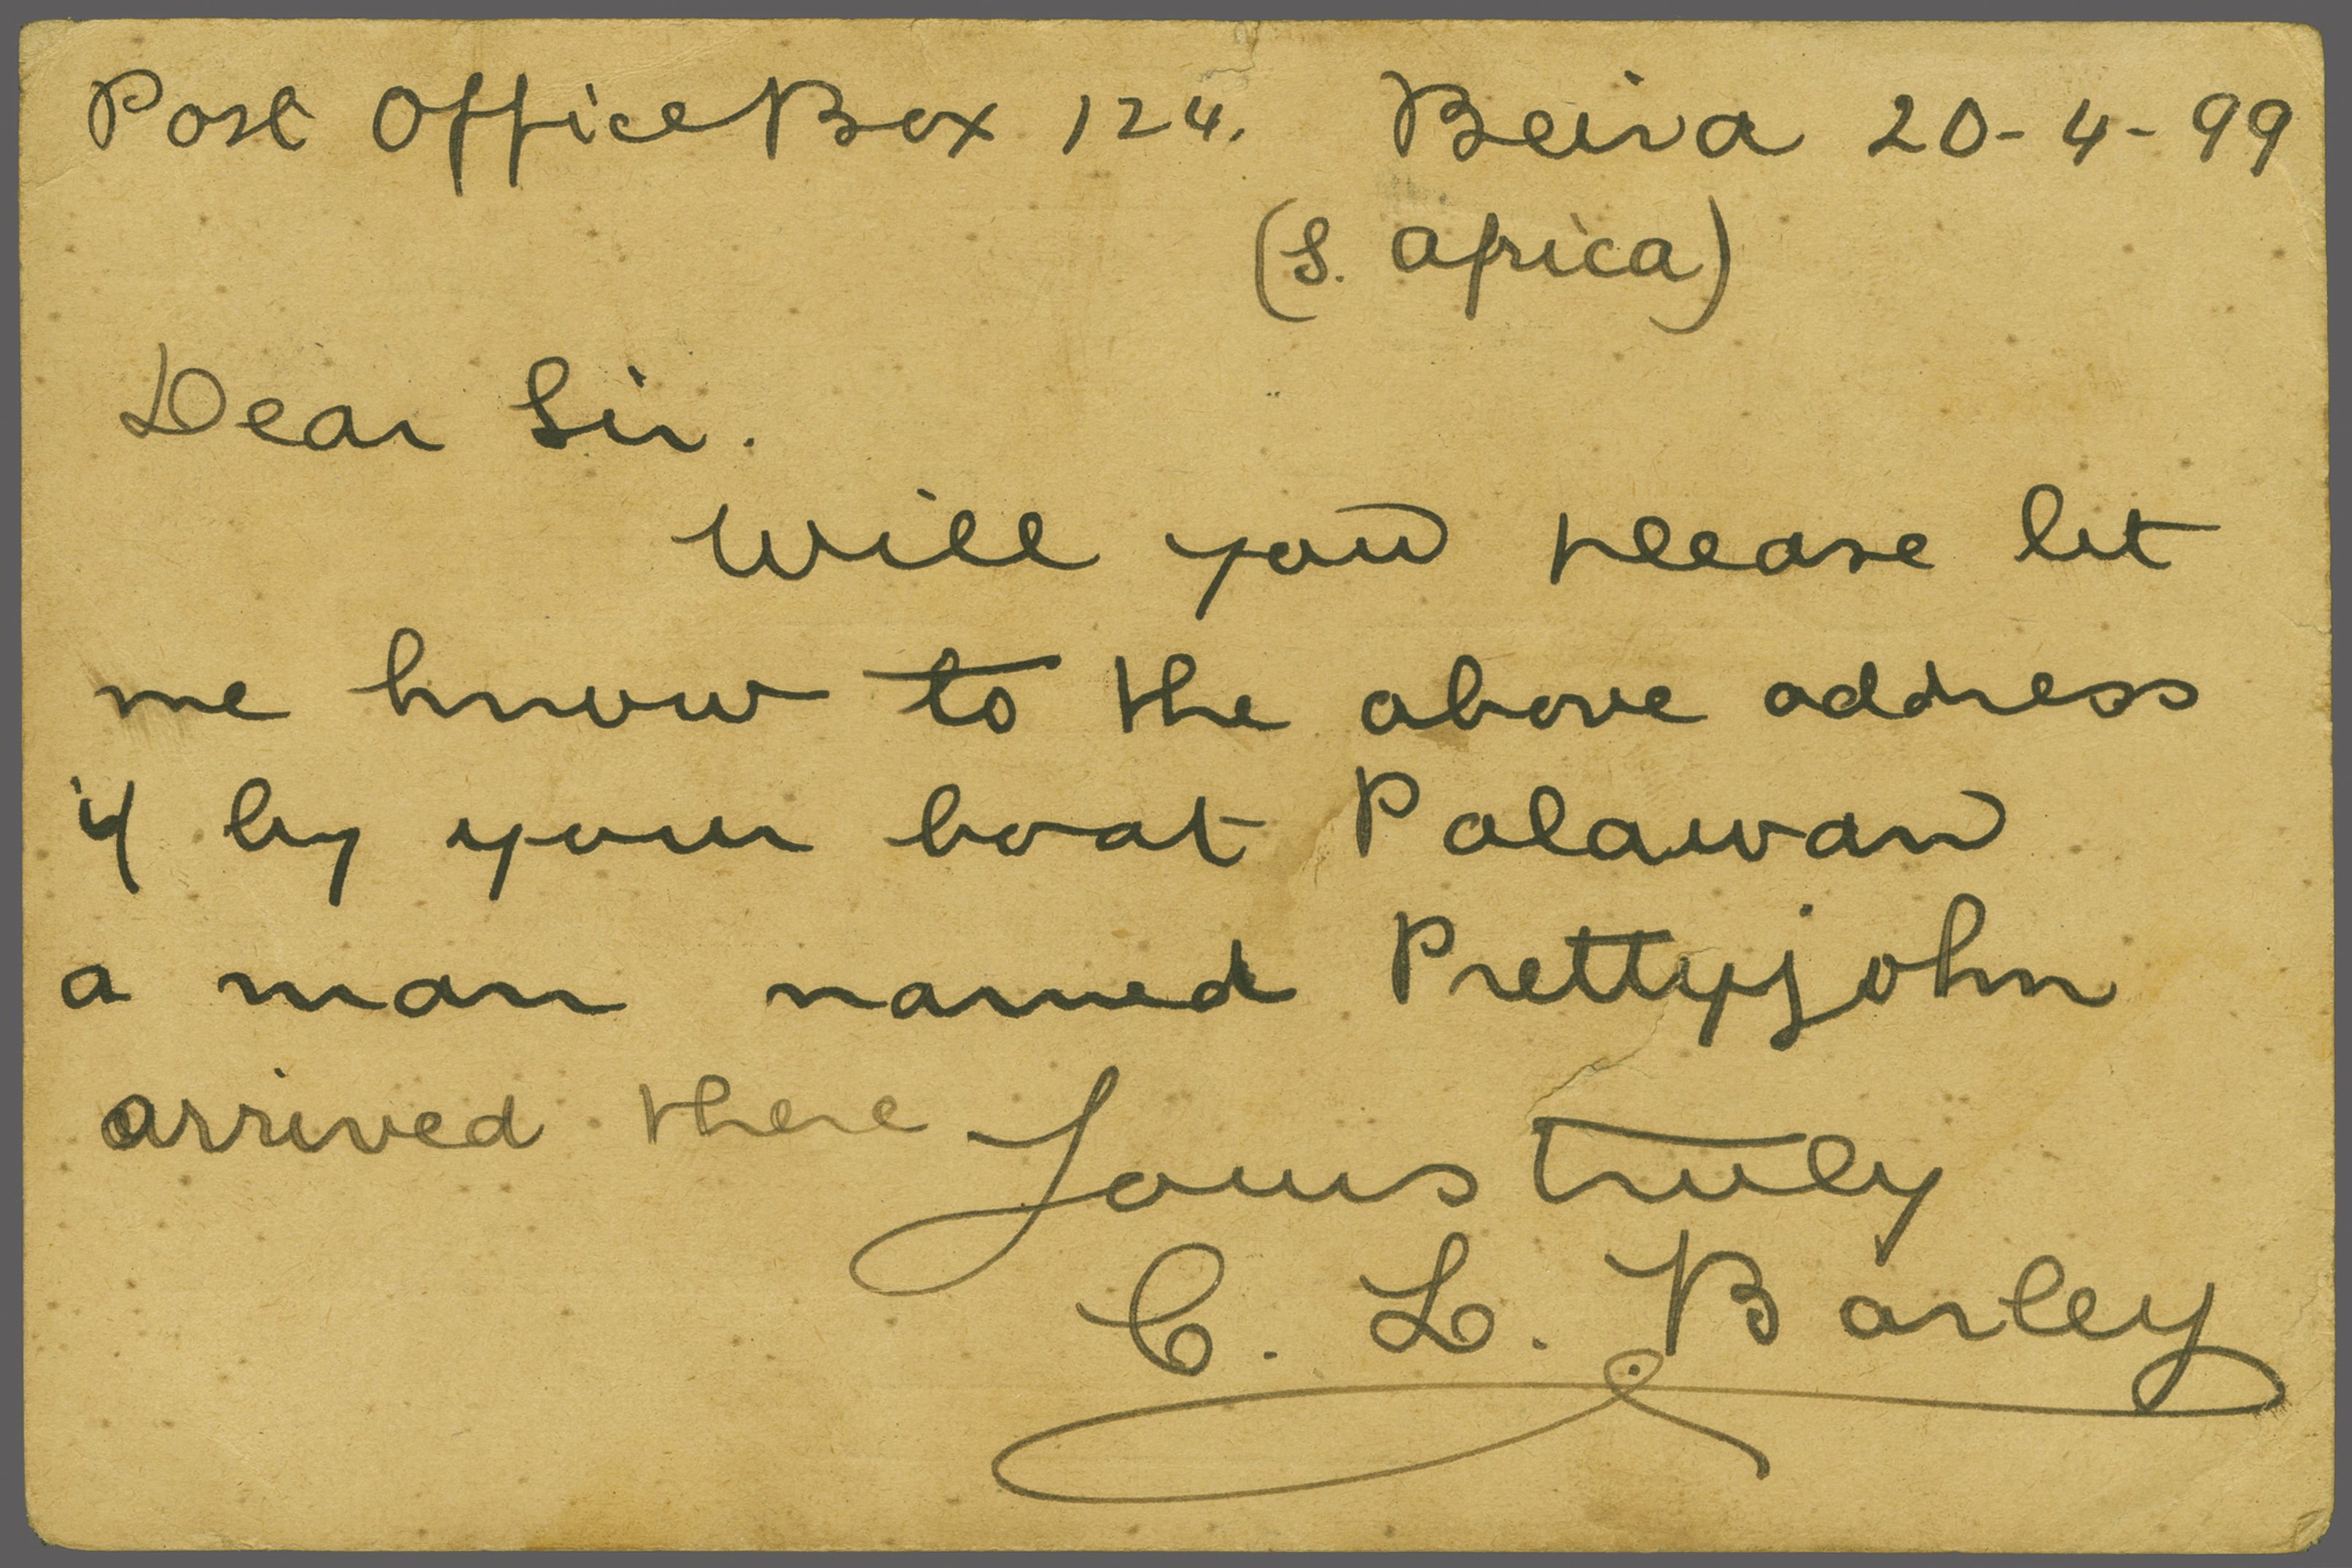 Post Office Box 124. Beira 20-4-99
(S. Africa)
Dear Sir.
Will you please let
me know to the above address
if by your boat Palawan
a man named Prettyjohn
arrived there
Yours truly
C. L. Barley